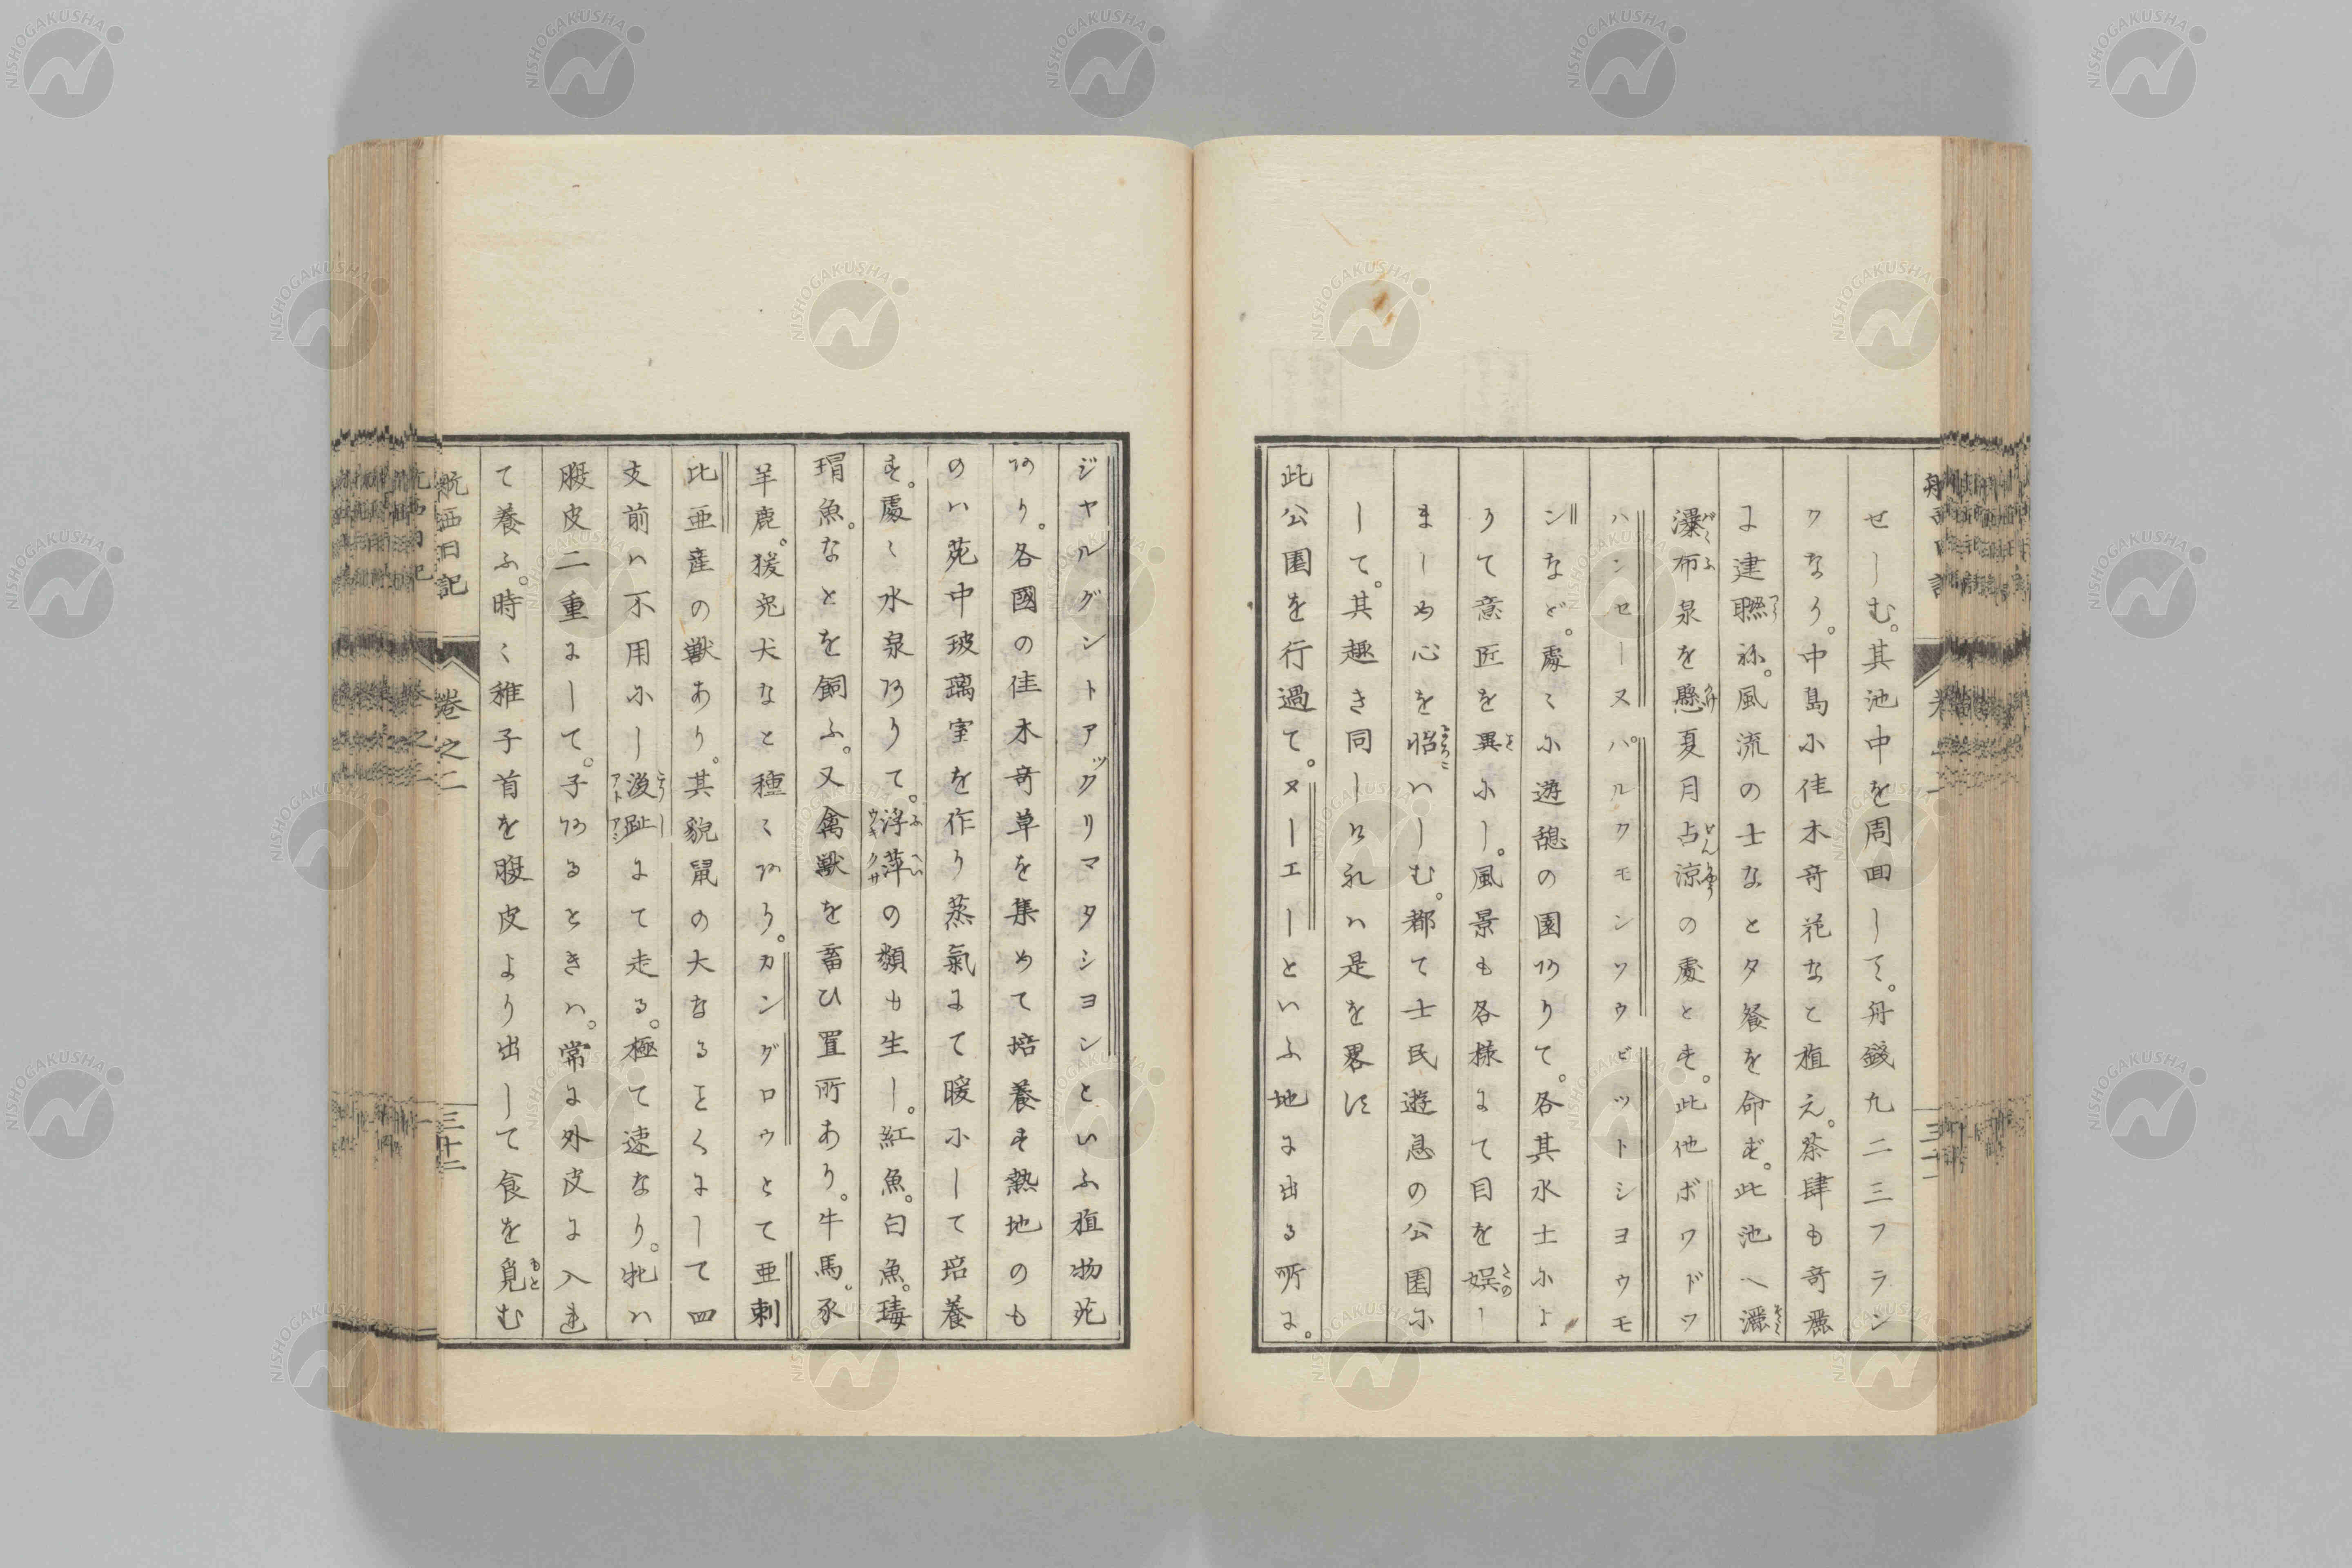 せしむ。其池中を周回して。舟錢凡二三フラン
クなり。中島に佳木奇花なと植え。茶肆も奇麗
に建聯ね。風流の士なとタ餐を命ず。此池へ灑く
瀑布泉を懸夏月占涼の處とす。此他ボワドワ
ハンセーヌパルクモンソウビットシヨウモ
ンなど。處々に遊憩の園ありて。各其水土によ
りて意匠を異にし。風景も各様にて目を娯し
ましめ心を怡ハしむ。都て士民遊息の公園に
して。其趣き同しけれハ是を畧す
此公園を行過て。ヌーエーといふ地に出る所に。
ジャルダントアックリマタシヨンといふ植物苑
あり。各國の佳木奇草を集めて培養す熱地のも
のハ苑中玻璃室を作り蒸氣にて暖にして培養
す。處々水泉ありて。浮萍の類も生し。紅魚。白魚。瑇
瑁魚。なとを飼ふ。又禽獸を畜ひ置所あり。牛馬。豕
羊鹿。猨兎犬なと種々あり。カングロウとて亜刺
比亜産の獣あり。其貌鼠の大なることくにして四
支前ハ不用にし後趾にて走る。極て速なり。牝ハ
腹皮二重にして。子あるときハ。常に外皮に入れ
て養ふ。時々稚子首を腹皮より出して食を覓む
航西日記
巻之二
三十二